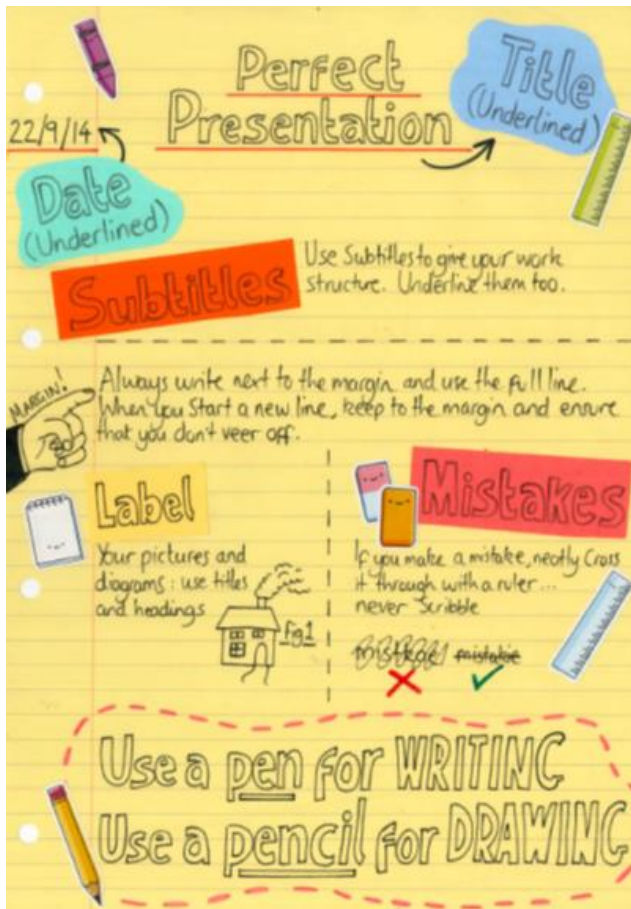 Perfect
Presentation
Title
(Underlined)
22/9/14
Date
(Underlined)
Subtitles
Use Subtitles to give your work
structure. Underline them too.
MARGIN!
Always write next to the margin and use the full line.
When you Start a new line, keep to the margin and ensure
that you don't veer off.
Label
Your pictures and
diagrams: use titles
and headings
Fig 1
Mistakes
If you make a mistake, neatly Cross
it through with a ruler...
never Scribble
mistake
Use a pen for WRITING
Use a pencil for DRAWING